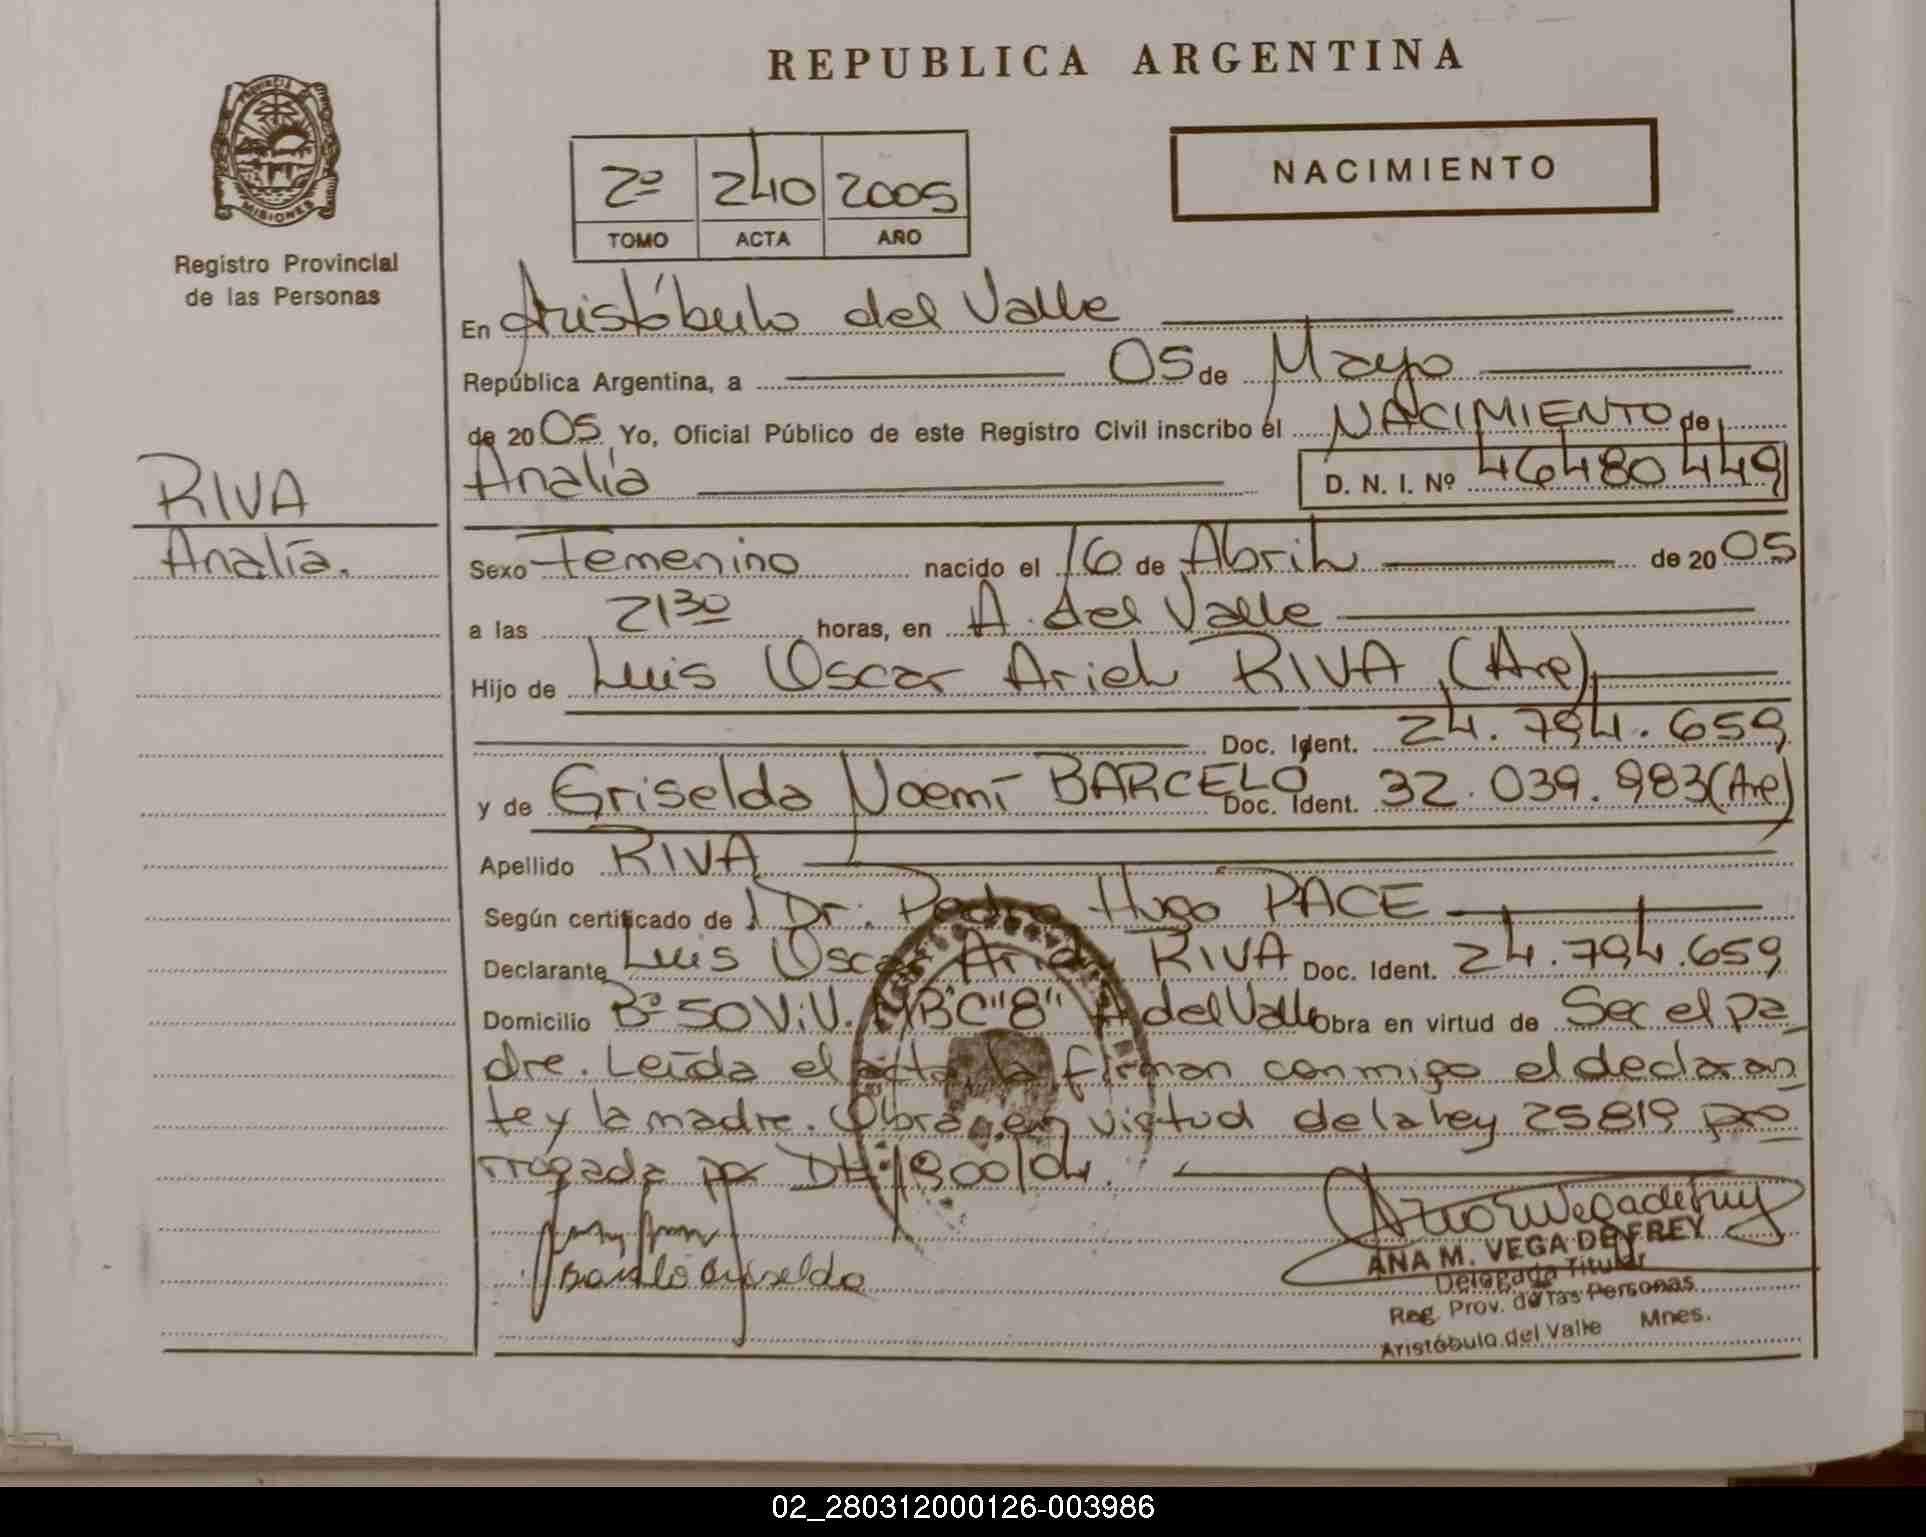 REPUBLICA ARGENTINA
PROVINCIA
MISIONES
Registro Provincial
de las Personas
2º 240 2005
TOMO ACTA AÑO
NACIMIENTO
En Aristóbulo del Valle
República Argentina, a 05 de Mayo
de 2005 Yo, Oficial Público de este Registro Civil inscribo el NACIMIENTO de
Analía D. N. I. Nº 46480449
RIVA
Analía.
Sexo Femenino nacido el 16 de Abril de 2005
a las 21 30 horas, en A. del Valle
Hijo de Luis Oscar Ariel RIVA (Arg)
Doc. Ident. 24.794.659
y de Griselda Noemí BARCELÓ Doc. Ident. 32.039.983 (Arg)
Apellido RIVA
Según certificado de Dr. Pedro Hugo PACE
Declarante Luis Oscar Ariel RIVA Doc. Ident. 24.794.659
Domicilio Bº 50 Viv. MBC "8" A del Valle Obra en virtud de Ser el pa
dre. Leída el acta la firman conmigo el declaran
te y la madre. Obra en virtud de la ley 25819 pro
rrogada por DH 1900/04.
Barceló Griselda
ANA M. VEGA DE FREY
Delegada Titular
Reg. Prov. de las Personas
Aristóbulo del Valle Mnes.
02_280312000126-003986